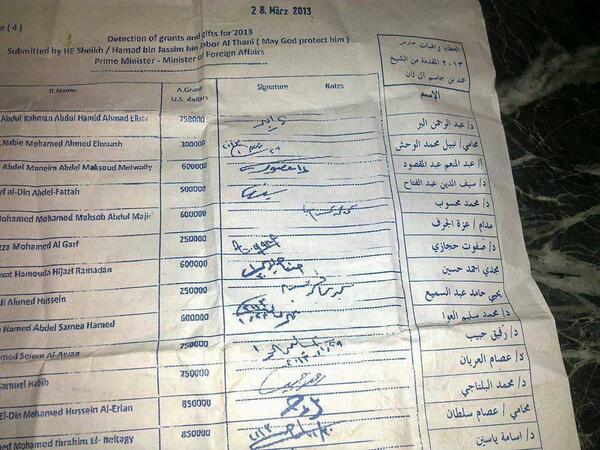 28. März 2013
e ( 4 )
Detection of grants and gifts for 2013
Submitted by HE Sheikh / Hamad bin Jassim bin Jabor Al Thani ( May God protect him )
Prime Minister - Minister of Foreign Affairs
العطايا والهبات مارس
٢٠١٣ المقدمة من الشيخ
حمد بن جاسم ال ثان
Name
A.Grant
U.S. dollars
Signature
Notes
الإسم
Abdul Rahman Abdul Hamid Ahmad Elbar
750000
د/ عبد الرحمن البر
Nabie Mohamed Ahmed Elwahsh
100000
محامي/ نبيل محمد الوحش
Abdel Moneim Abdel Maksoud Metwally
250000
أ/ عبد المنعم عبد المقصود
yf al-Din Abdel-Fattah
500000
د/ سيف الدين عبد الفتاح
Mohamed Mohamed Mahsob Abdul Majid
600000
د/ محمد محسوب
zza Mohamed Al Garf
250000
مدام / عزة الجرف
wat Hamouda Hijazi Ramadan
600000
د/ صفوت حجازي
di Ahmed Hussein
250000
مجدي احمد حسين
e Hamed Abdel Samea Hamed
600000
يحيي حامد عبد السميع
med Selem Al-Awaa
750000
د/ محمد سليم العوا
Samuel Habib
750000
د/ رفيق حبيب
El-Din Mohamed Hussein Al-Erian
850000
د/ عصام العريان
ed Mohamed Ibrahim El- Beltagy
850000
د/ محمد البلتاجي
محامي / عصام سلطان
د/ اسامة ياسين